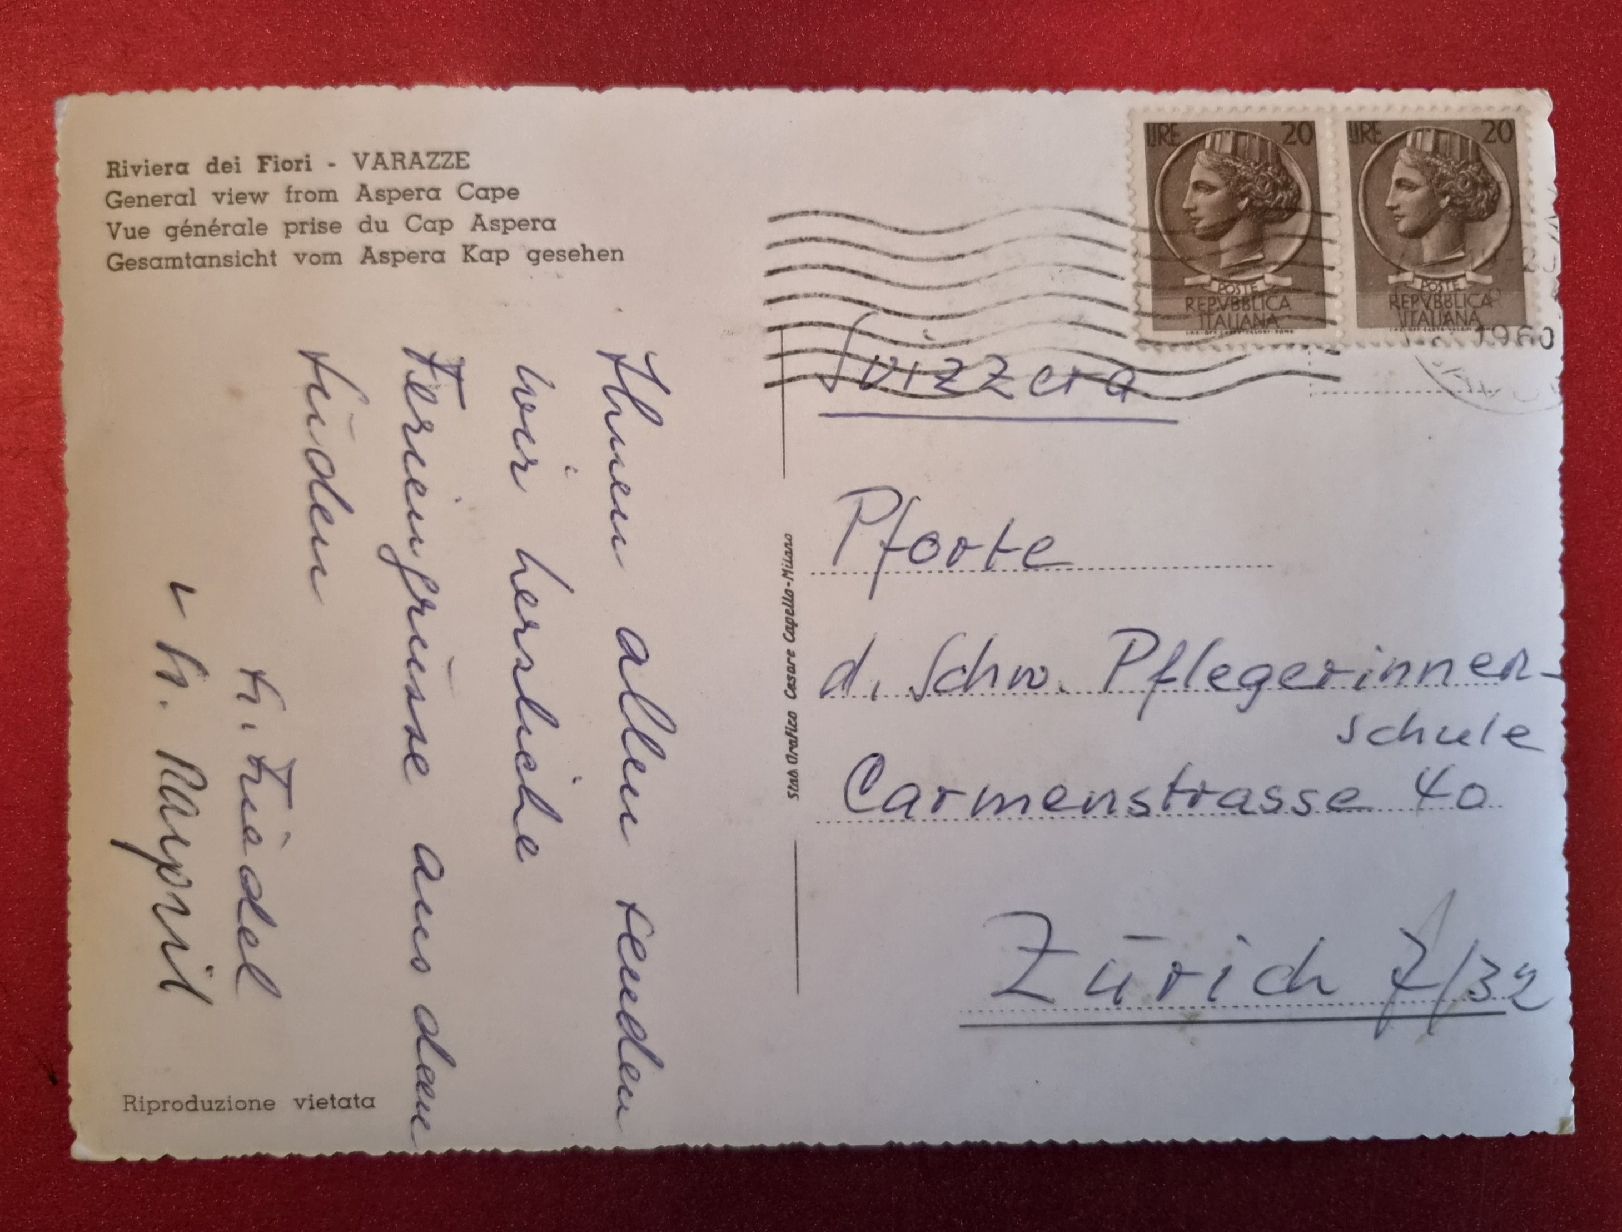 Riviera dei Fiori - VARAZZE
General view from Aspera Cape
Vue générale prise du Cap Aspera
Gesamtansicht vom Aspera Kap gesehen
Ihnen allen senden
wir herzliche
Feriengrüsse aus dem
Süden
H. Friedel
Riproduzione vietata
Stab. Grafico Cesare Capello-Milano
LIRE 20
POSTE
REPVBBLICA
ITALIANA
LIRE 20
POSTE
REPVBBLICA
ITALIANA
1960
Svizzera
Pforte
d. Schw. Pflegerinnen-
schule
Carmenstrasse 40
Zürich 7/32